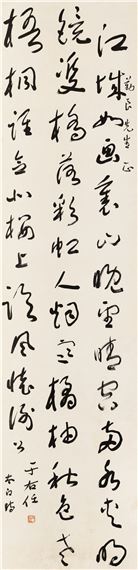 先生正
江城如画裏山晚望晴空兩水夾明
鏡雙橋落彩虹人烟寒橘柚秋色老
梧桐誰念北樓上臨風懷謝公
太白詩
于右任